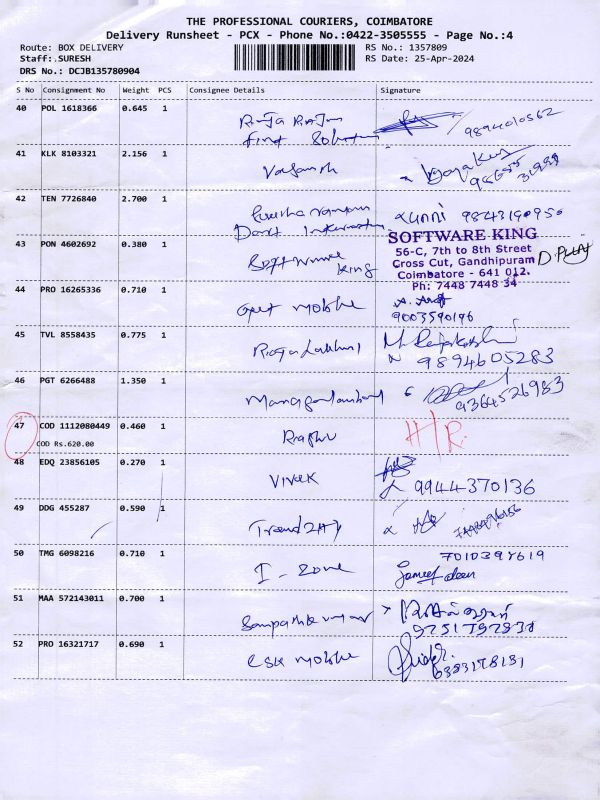 THE PROFESSIONAL COURIERS, COIMBATORE
Delivery Runsheet - PCX - Phone No.:0422-3505555 - Page No.:4
Route: BOX DELIVERY
RS No.: 1357809
Staff:.SURESH
RS Date: 25-Apr-2024
DRS No.: DCJB135780904
S No Consignment No Weight PCS Consignee Details Signature
40 POL 1618366 0.645 1
Raja Rajan
First
9894010562
41 KLK 8103321 2.156 1
42 TEN 7726840 2.700 1
9843190950
43 PON 4602692 0.380 1
Software King
SOFTWARE KING
56-C, 7th to 8th Street
Cross Cut, Gandhipuram
Coimbatore - 641 012.
Ph: 7448 7448 34
44 PRO 16265336 0.710 1
Get Mobile
9003590196
45 TVL 8558435 0.775 1
Raja Lakhmi
9894605283
46 PGT 6266488 1.350 1
9364526983
47 COD 1112080449 0.460 1
COD Rs.620.00
Raghu
H/R.
48 EDQ 23856105 0.270 1
Vivek
9944370136
49 DDG 455287 0.590 1
Trend2Hy
50 TMG 6098216 0.710 1
I-Zone
7010398619
Jameefdeen
51 MAA 572143011 0.700 1
9751792838
52 PRO 16321717 0.690 1
CSK Mobile
6383178131